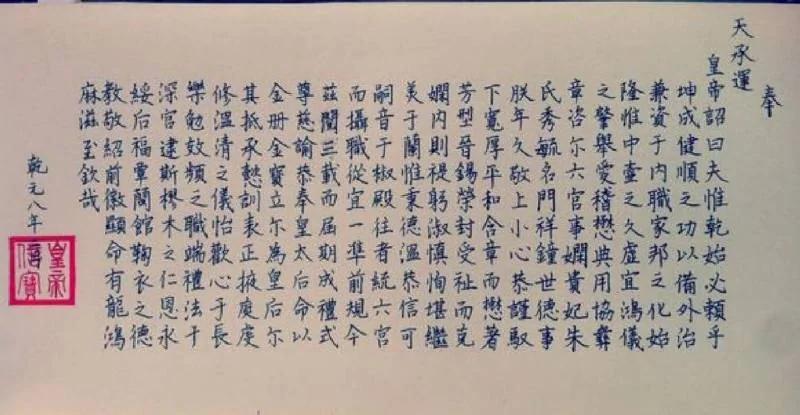 奉
天承運
皇帝詔曰夫惟乾始必賴乎
坤成健順之功以備外治
兼資于內職家邦之化始
隆惟中壼之久虛宜鴻儀
之肇舉爰稽懋典用協彝
章咨尔六官事嫻貴妃朱
氏秀毓名門祥鐘世德事
朕年久敬上小心恭謹馭
下寬厚平和含章而懋著
芳型晉錫榮封受祉而克
嫻內則褆躬淑慎恂堪繼
美于蘭惟秉德溫恭信可
嗣音于椒殿往者統六宮
而攝職從宜一準前規今
茲闋三載而屆期成禮式
尊慈諭恭奉皇太后命以
金册金寶立尔為皇后尔
其祗承懿訓表正掖庭虔
修溫清之儀怡歡心于長
樂勉效頻之職端禮法于
深宮逮斯樛木之仁恩永
綏后福覃蘭館鞠衣之德
教敬紹前徽顯命有龍鴻
麻滋至欽哉
乾元八年
皇帝
信寶